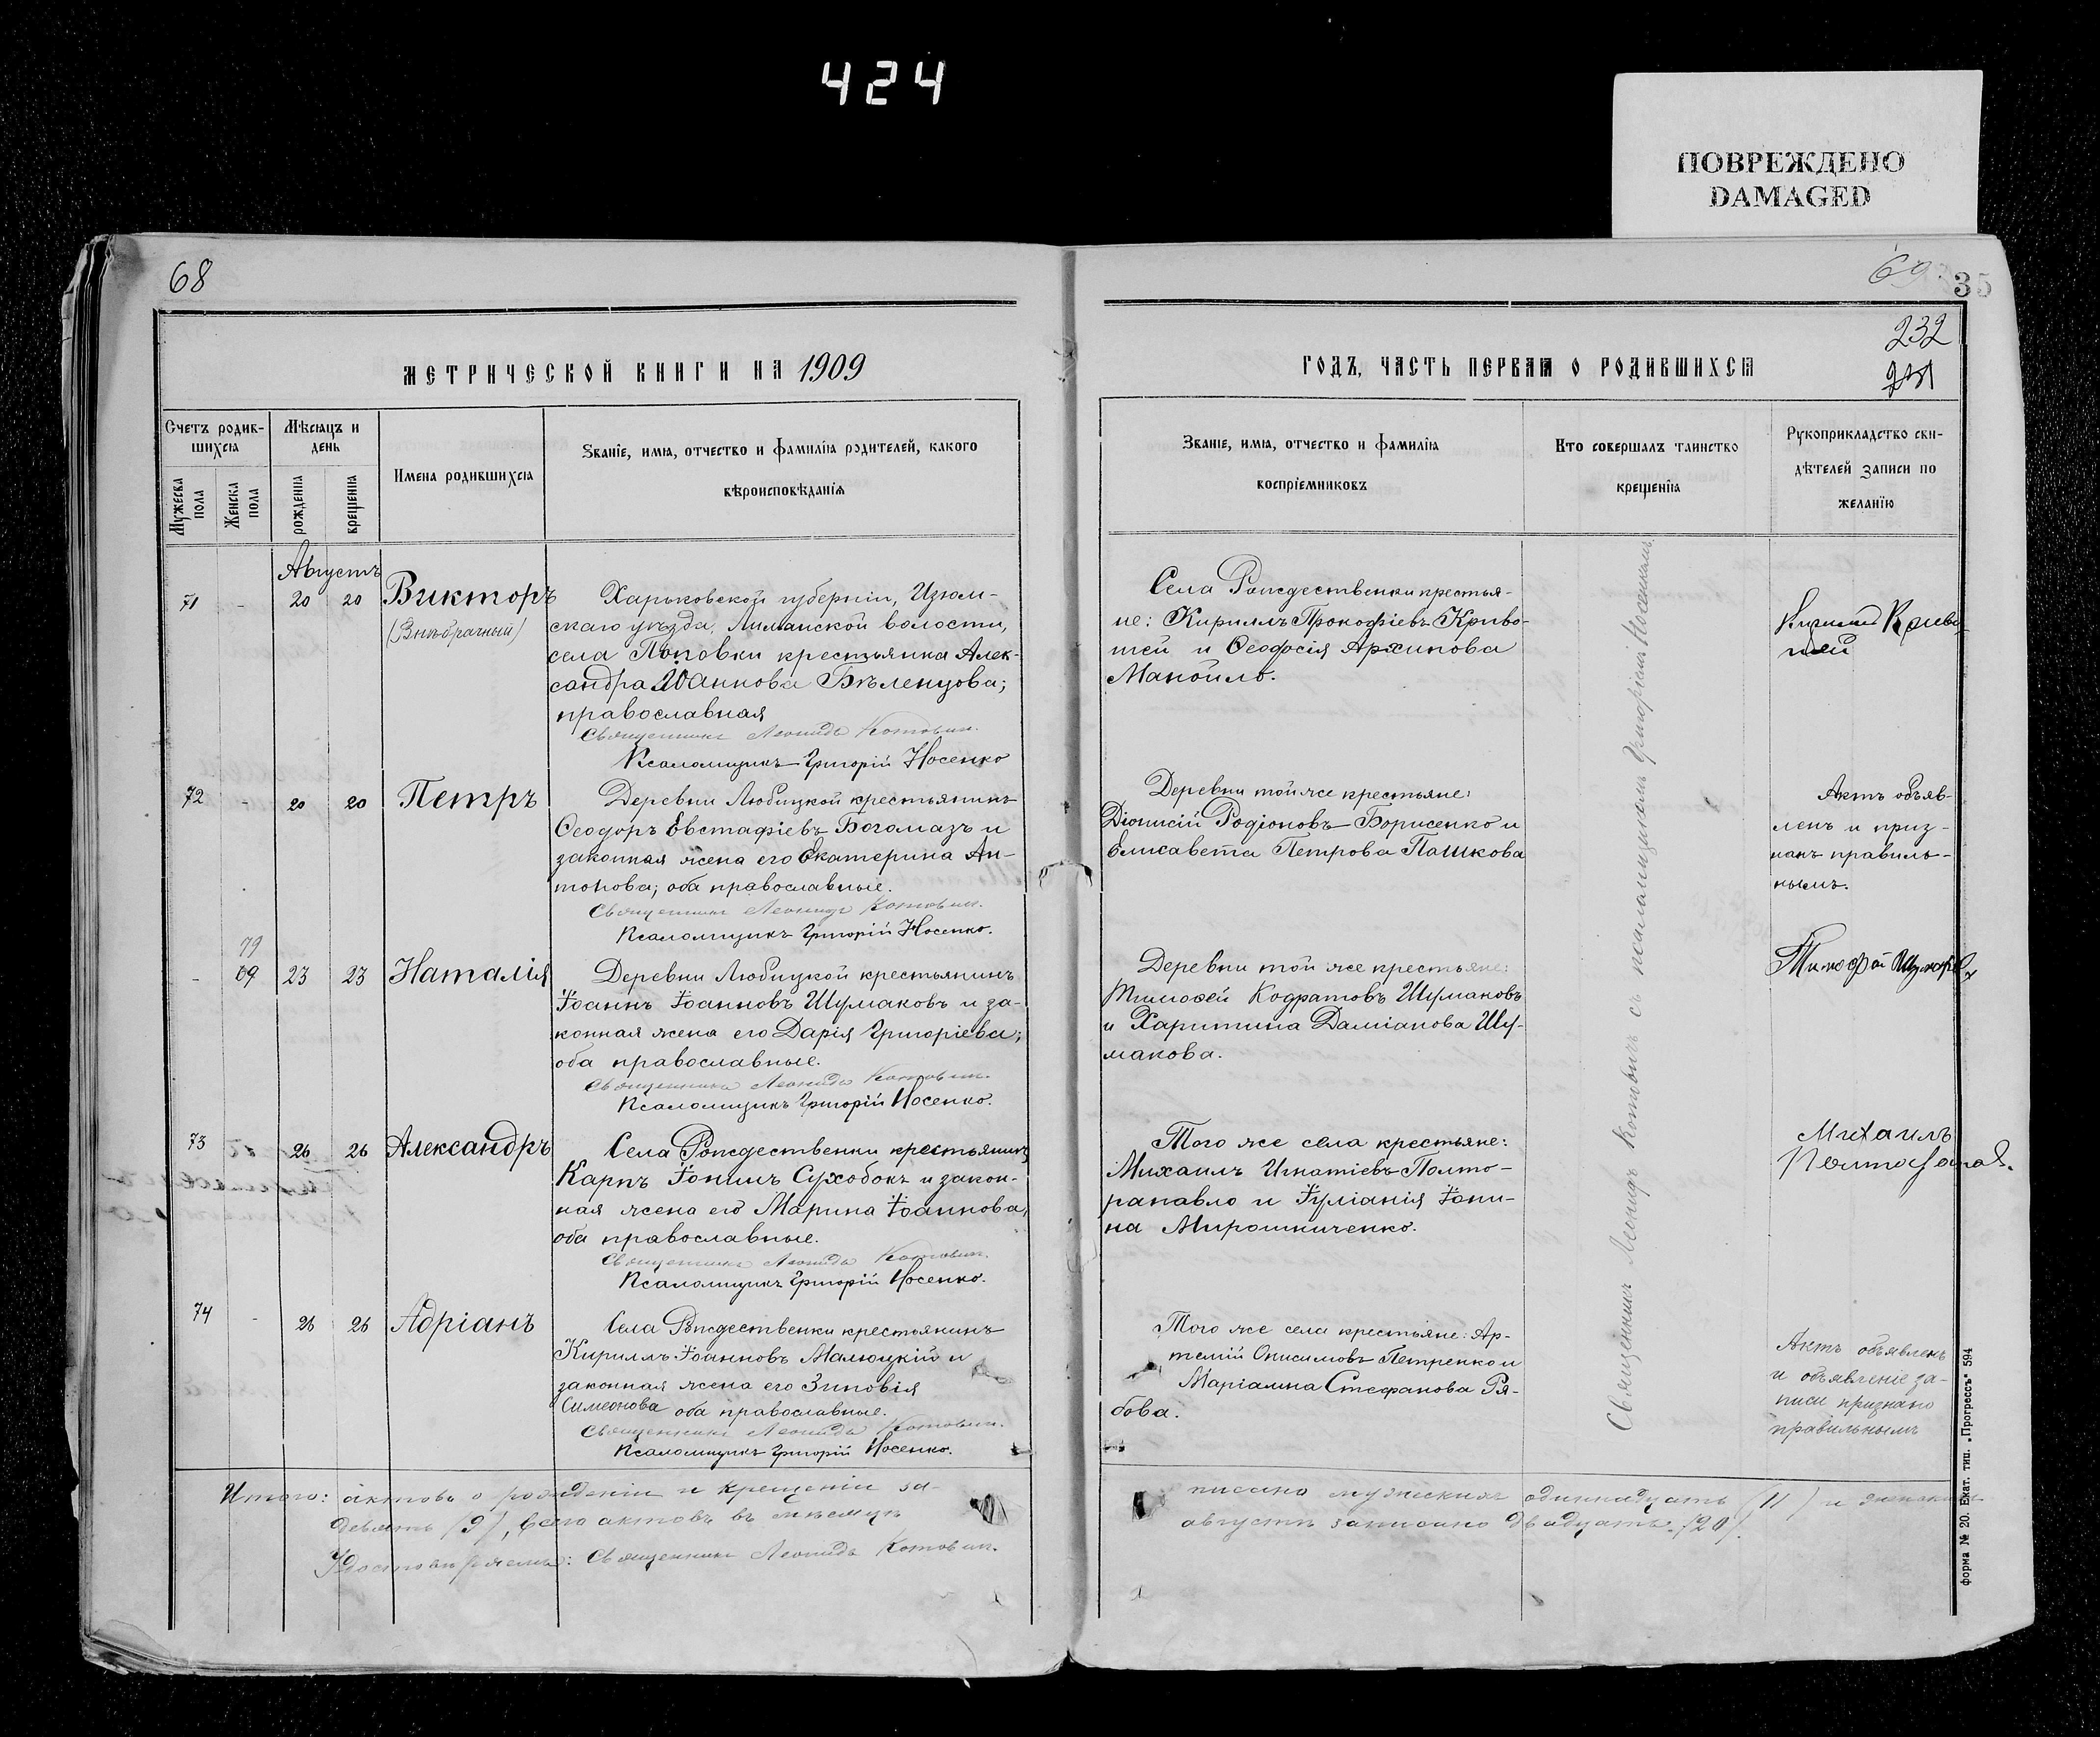 424
ПОВРЕЖДЕНО
DAMAGED
68
МЕТРИЧЕСКОЙ КНИГИ НА 1909
Счетъ родив-
шихся
Мѣсяцъ и
день
Имена родившихся
Званіе, имя, отчество и фамилія родителей, какого
вѣроисповѣданія
Мужеска
пола
Женска
пола
рожденія
крещенія
Августъ
71
-
20
20
Викторъ
(Внѣбрачный)
Харьковской губерніи, Изюм-
скаго уѣзда, Лиманской волости,
села Поповки крестьянка Алек-
сандра Іоаннова Бѣленцова;
православная
Священникъ Леонидъ Котовичъ.
Псаломщикъ Григорій Носенко
72
-
20
20
Петръ
Деревни Любицкой крестьянинъ
Ѳеодоръ Евстафіевъ Богомазъ и
законная жена его Екатерина Ан-
тонова; оба православные.
Священникъ Леонидъ Котовичъ.
Псаломщикъ Григорій Носенко.
79
-
69
23
23
Наталія
Деревни Любицкой крестьянинъ
Іоаннъ Іоанновъ Шумаковъ и за-
конная жена его Дарія Григоріева;
оба православные.
Священникъ Леонидъ Котовичъ.
Псаломщикъ Григорій Носенко.
73
26
26
Александръ
Села Рождественки крестьянинъ
Карпъ Іонинъ Сухобокъ и закон-
ная жена его Марина Іоаннова,
оба православные.
Священникъ Леонидъ Котовичъ.
Псаломщикъ Григорій Носенко.
74
-
26
26
Адріанъ
Села Рождественки крестьянинъ
Кириллъ Іоанновъ Малюцкій и
законная жена его Зиновія
Симеонова оба православные.
Священникъ Леонидъ Котовичъ.
Псаломщикъ Григорій Носенко.
Итого: актовъ о рожденіи и крещеніи за-
девять (9), всего актовъ въ мѣсяцѣ
Удостовѣряемъ: Священникъ Леонидъ Котовичъ.
69
35
232
231
ГОДЪ, ЧАСТЬ ПЕРВАЯ О РОДИВШИХСЯ
Званіе, имя, отчество и фамилія
воспріемниковъ
Кто совершалъ таинство
крещенія
Рукоприкладство сви-
дѣтелей записи по
желанію
Села Рождественки крестья-
не: Кириллъ Прокофіевъ Криво-
шей и Ѳеодосія Архипова
Манойло.
Кирилъ Криво
шей
Деревни той же крестьяне:
Діонисій Родіоновъ Борисенко и
Елисавета Петрова Пашкова
Актъ объяв-
ленъ и приз-
нанъ правиль-
нымъ.
Деревни той же крестьяне:
Тимоѳей Кодратовъ Шумаковъ
и Харитина Даміанова Шу-
макова.
Того же села крестьяне:
Михаилъ Игнатіевъ Полто-
рапавло и Іуліанія Іони-
на Мирошниченко.
Михаилъ
Того же села крестьяне: Ар-
темій Онисимовъ Петренко и
Маріамна Стефанова Ря-
бова.
Актъ объявленъ
и объявленіе за-
писи признано
правильнымъ
Священникъ Леонидъ Котовичъ съ псаломщикомъ Григоріемъ Носенкомъ
писано мужескихъ одиннадцать (11) и женскихъ
августѣ записано двадцать (20).
форма № 20. Екат. тип. „Прогрессъ“ 594